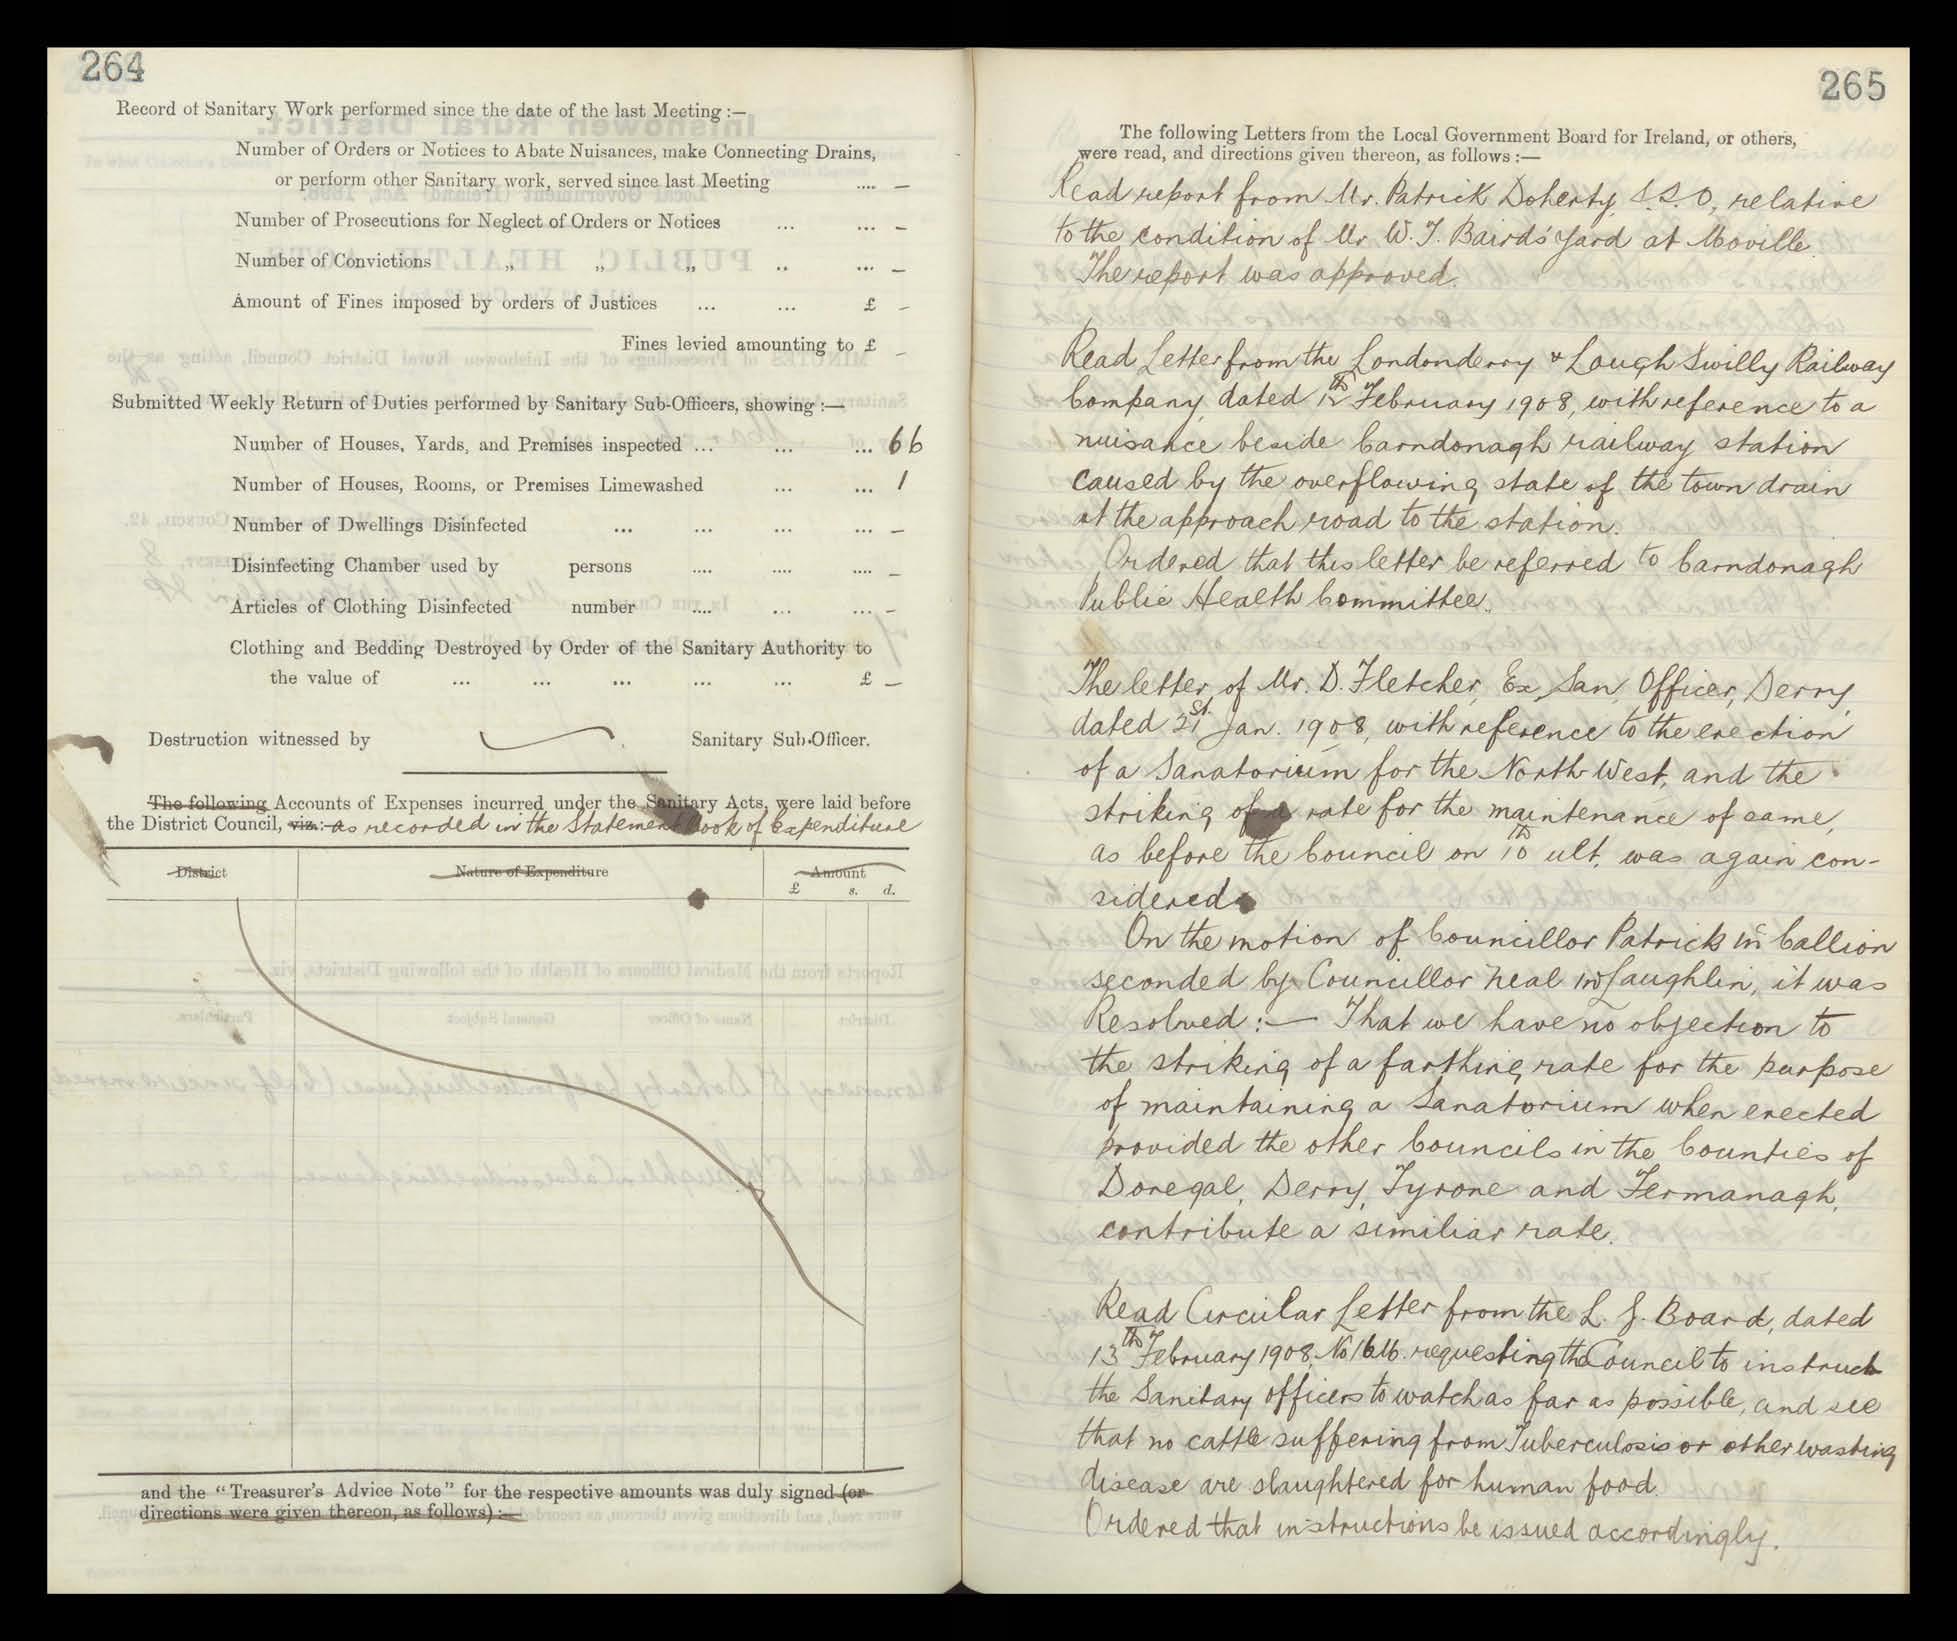 264
Record of Sanitary Work performed since the date of the last Meeting :—
Number of Orders or Notices to Abate Nuisances, make Connecting Drains,
or perform other Sanitary work, served since last Meeting .... —
Number of Prosecutions for Neglect of Orders or Notices ... ... —
Number of Convictions „ „ „ .. ... —
Amount of Fines imposed by orders of Justices ... ... £ —
Fines levied amounting to £ —
Submitted Weekly Return of Duties performed by Sanitary Sub-Officers, showing :—
Number of Houses, Yards, and Premises inspected ... ... ... 66
Number of Houses, Rooms, or Premises Limewashed ... ... 1
Number of Dwellings Disinfected ... ... ... ... —
Disinfecting Chamber used by persons .... .... .... —
Articles of Clothing Disinfected number .... ... ... —
Clothing and Bedding Destroyed by Order of the Sanitary Authority to
the value of ... ... ... ... ... £ —
Destruction witnessed by Sanitary Sub-Officer.
The following Accounts of Expenses incurred under the Sanitary Acts, were laid before
the District Council, viz.:- as recorded in the Statement Book of Expenditure
District Nature of Expenditure Amount
£ s. d.
and the "Treasurer's Advice Note" for the respective amounts was duly signed (or
directions were given thereon, as follows) :—
265
The following Letters from the Local Government Board for Ireland, or others,
were read, and directions given thereon, as follows :—
Read report from Mr. Patrick Doherty, S.S.O, relative
to the condition of Mr W. J. Baird's Yard at Moville.
The report was approved.
Read Letter from the Londonderry & Lough Swilly Railway
Company, dated 12th February 1908, with reference to a
nuisance beside Carndonagh railway station
caused by the overflowing state of the town drain
at the approach road to the station.
Ordered that this letter be referred to Carndonagh
Public Health Committee.
The letter of Mr. D. Fletcher, Ex. San. Officer, Derry,
dated 21st Jan. 1908, with reference to the erection
of a Sanatorium for the North West, and the
striking of a rate for the maintenance of same,
as before the Council on 10th ult, was again con-
sidered.
On the motion of Councillor Patrick McCallion
seconded by Councillor Neal McLaughlin, it was
Resolved :— That we have no objection to
the striking of a farthing rate for the purpose
of maintaining a Sanatorium when erected
provided the other Councils in the Counties of
Donegal, Derry, Tyrone and Fermanagh,
contribute a similiar rate.
Read Circular Letter from the L. G. Board, dated
13th February 1908, No 16 M. requesting the Council to instruct
the Sanitary officers to watch as far as possible, and see
that no cattle suffering from Tuberculosis or other wasting
disease are slaughtered for human food.
Ordered that instructions be issued accordingly.